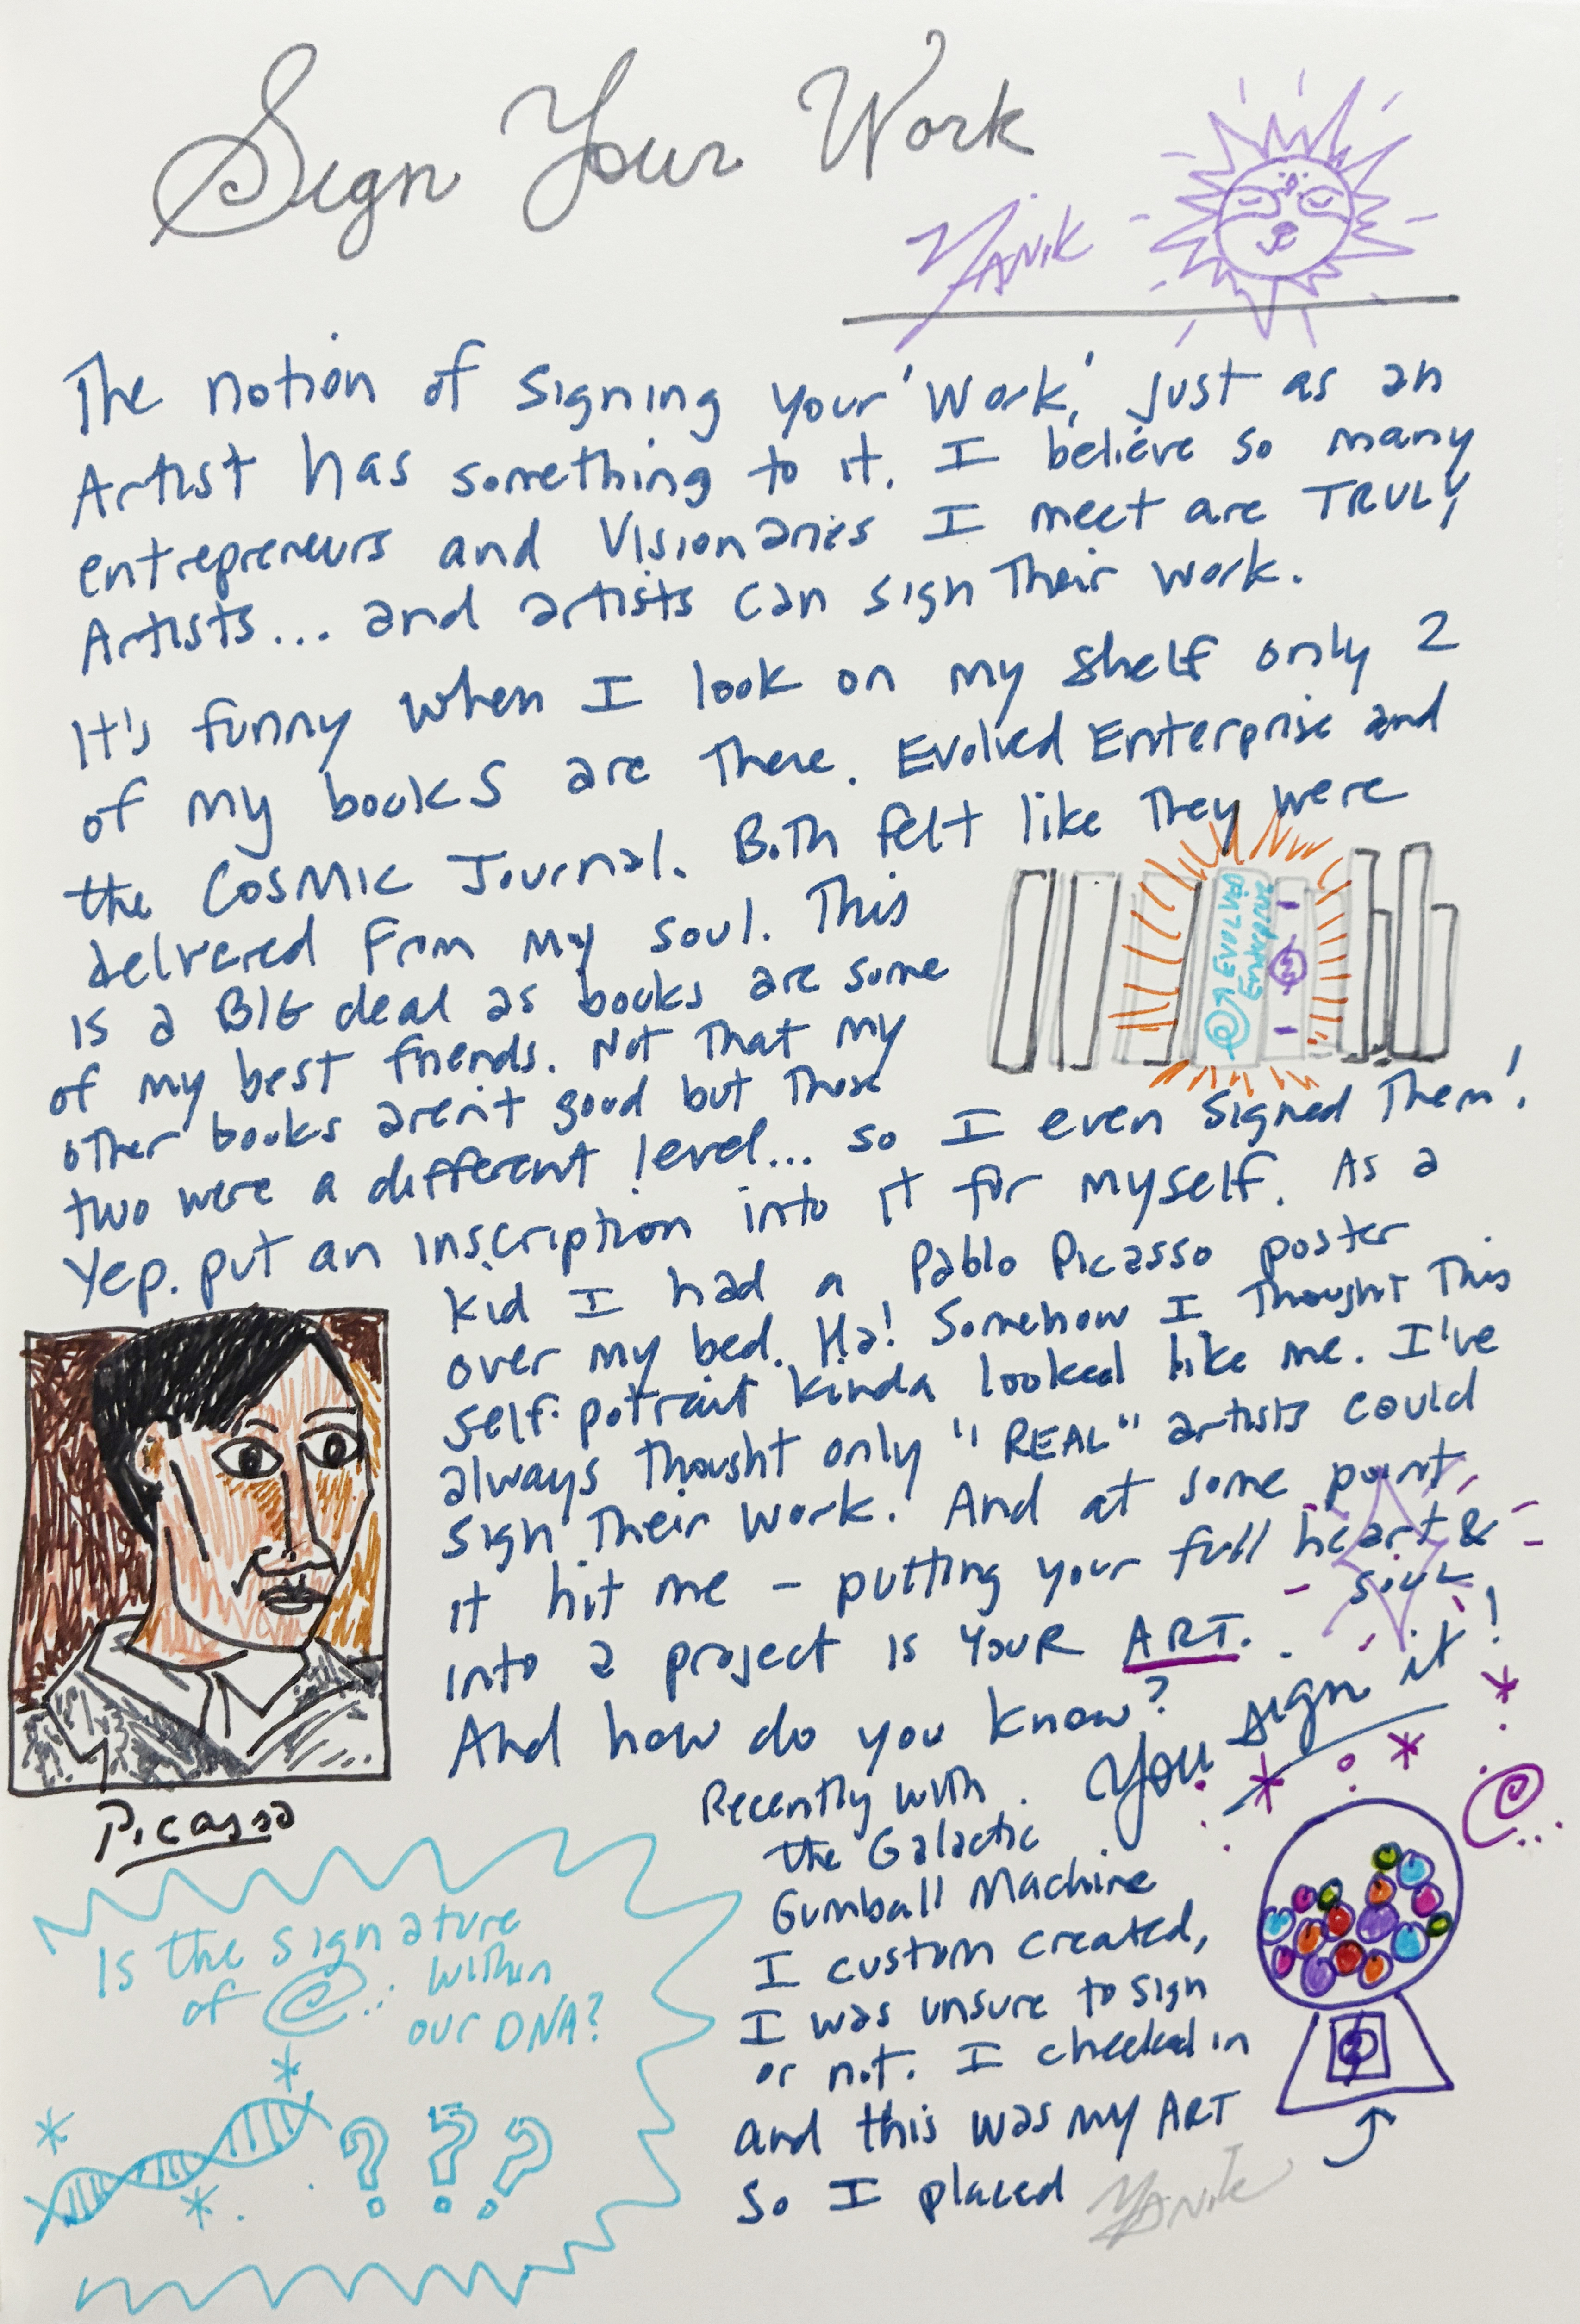 Sign Your Work
YANIK
The notion of signing your 'Work,' just as an
Artist has something to it. I believe so many
entrepreneurs and Visionaries I meet are TRULY
Artists... and artists can sign their work.
It's funny when I look on my shelf only 2
of my books are there. Evolved Enterprise and
the Cosmic Journal. Both felt like they were
delivered from my soul. This
is a BIG deal as books are some
of my best friends. Not that my
other books aren't good but those
two were a different level... so I even signed them!
Yep. put an inscription into it for myself. As a
kid I had a Pablo Picasso poster
over my bed. Ha! Somehow I thought this
self-potrait kinda looked like me. I've
always thought only "REAL" artists could
sign their work. And at some point
it hit me - putting your full heart &
soul
into a project is YOUR ART.
And how do you know? You sign it!
EVOLVED
ENTERPRISE
Picasso
Recently with
the Galactic
Gumball Machine
I custom created,
I was unsure to sign
or not. I checked in
and this was my ART
So I placed YANIK
Is the signature
of within
our DNA?
? ? ?